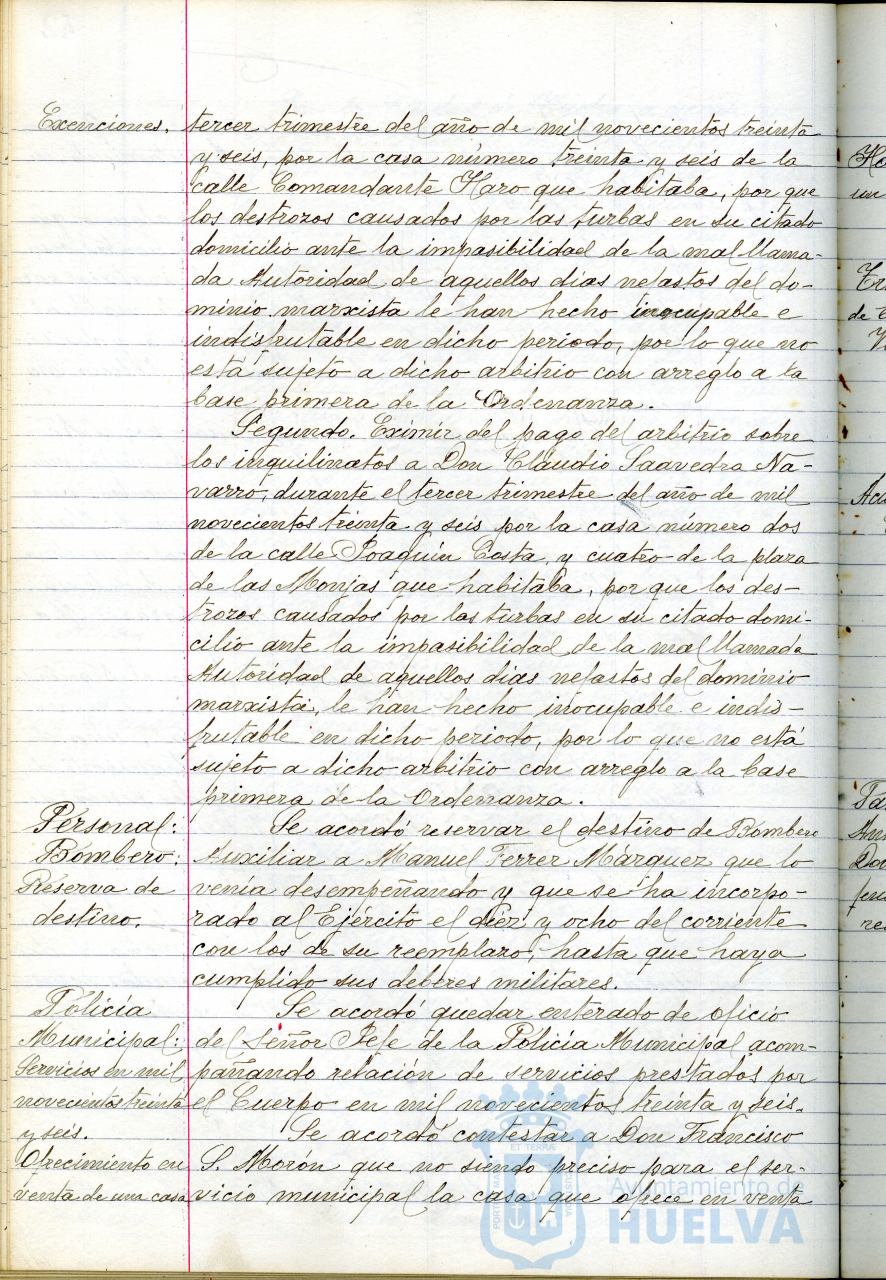 Exenciones. tercer trimestre del año de mil novecientos treinta
y seis, por la casa número treinta y seis de la
calle Comandante Haro que habitaba, por que
los destrozos causados por las turbas en su citado
domicilio ante la impasibilidad de la mal llama-
da Autoridad de aquellos días nefastos del do-
minio marxista le han hecho inocupable e
indisfrutable en dicho periodo, por lo que no
está sujeto a dicho arbitrio con arreglo a la
base primera de la Ordenanza.
Segundo. Eximir del pago del arbitrio sobre
los inquilinatos a Don Claudio Saavedra Na-
varro, durante el tercer trimestre del año de mil
novecientos treinta y seis por la casa número dos
de la calle Joaquín Costa, y cuatro de la plaza
de las Monjas que habitaba, por que los des-
trozos causados por las turbas en su citado domi-
cilio ante la impasibilidad de la mal llamada
Autoridad de aquellos días nefastos del dominio
marxista, le han hecho inocupable e indis-
frutable en dicho periodo, por lo que no está
sujeto a dicho arbitrio con arreglo a la base
primera de la Ordenanza.
Personal: Se acordó reservar el destino de Bombero
Bombero: Auxiliar a Manuel Ferrer Márquez que lo
Reserva de venía desempeñando y que se ha incorpo-
destino. rado al Ejército el diez y ocho del corriente
con los de su reemplazo, hasta que haya
cumplido sus deberes militares.
Policía Se acordó quedar enterado de oficio
Municipal: del Señor Jefe de la Policía Municipal acom-
Servicios en mil pañando relación de servicios prestados por
novecientos treinta el Cuerpo en mil novecientos treinta y seis.
y seis. Se acordó contestar a Don Francisco
Ofrecimiento en S. Morón que no siendo preciso para el ser-
venta de una casa vicio municipal la casa que ofrece en venta
ET TERRA
PORTUS MARIS
CUSTODIA
Ayuntamiento de
HUELVA